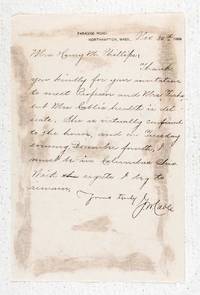 PARADISE ROAD
NORTHAMPTON, MASS.
Nov. 30th
Mrs. Henry M. Phillips,
Thank
you kindly for your invitation
to meet Professor and Mrs.
but Mrs. Cable's health is del-
icate. She is virtually confined
to the house, and on Tuesday
evening, December fourth, I
must be in Columbus, Ohio.
With regrets I beg to
remain,
Yours truly,
G. W. Cable